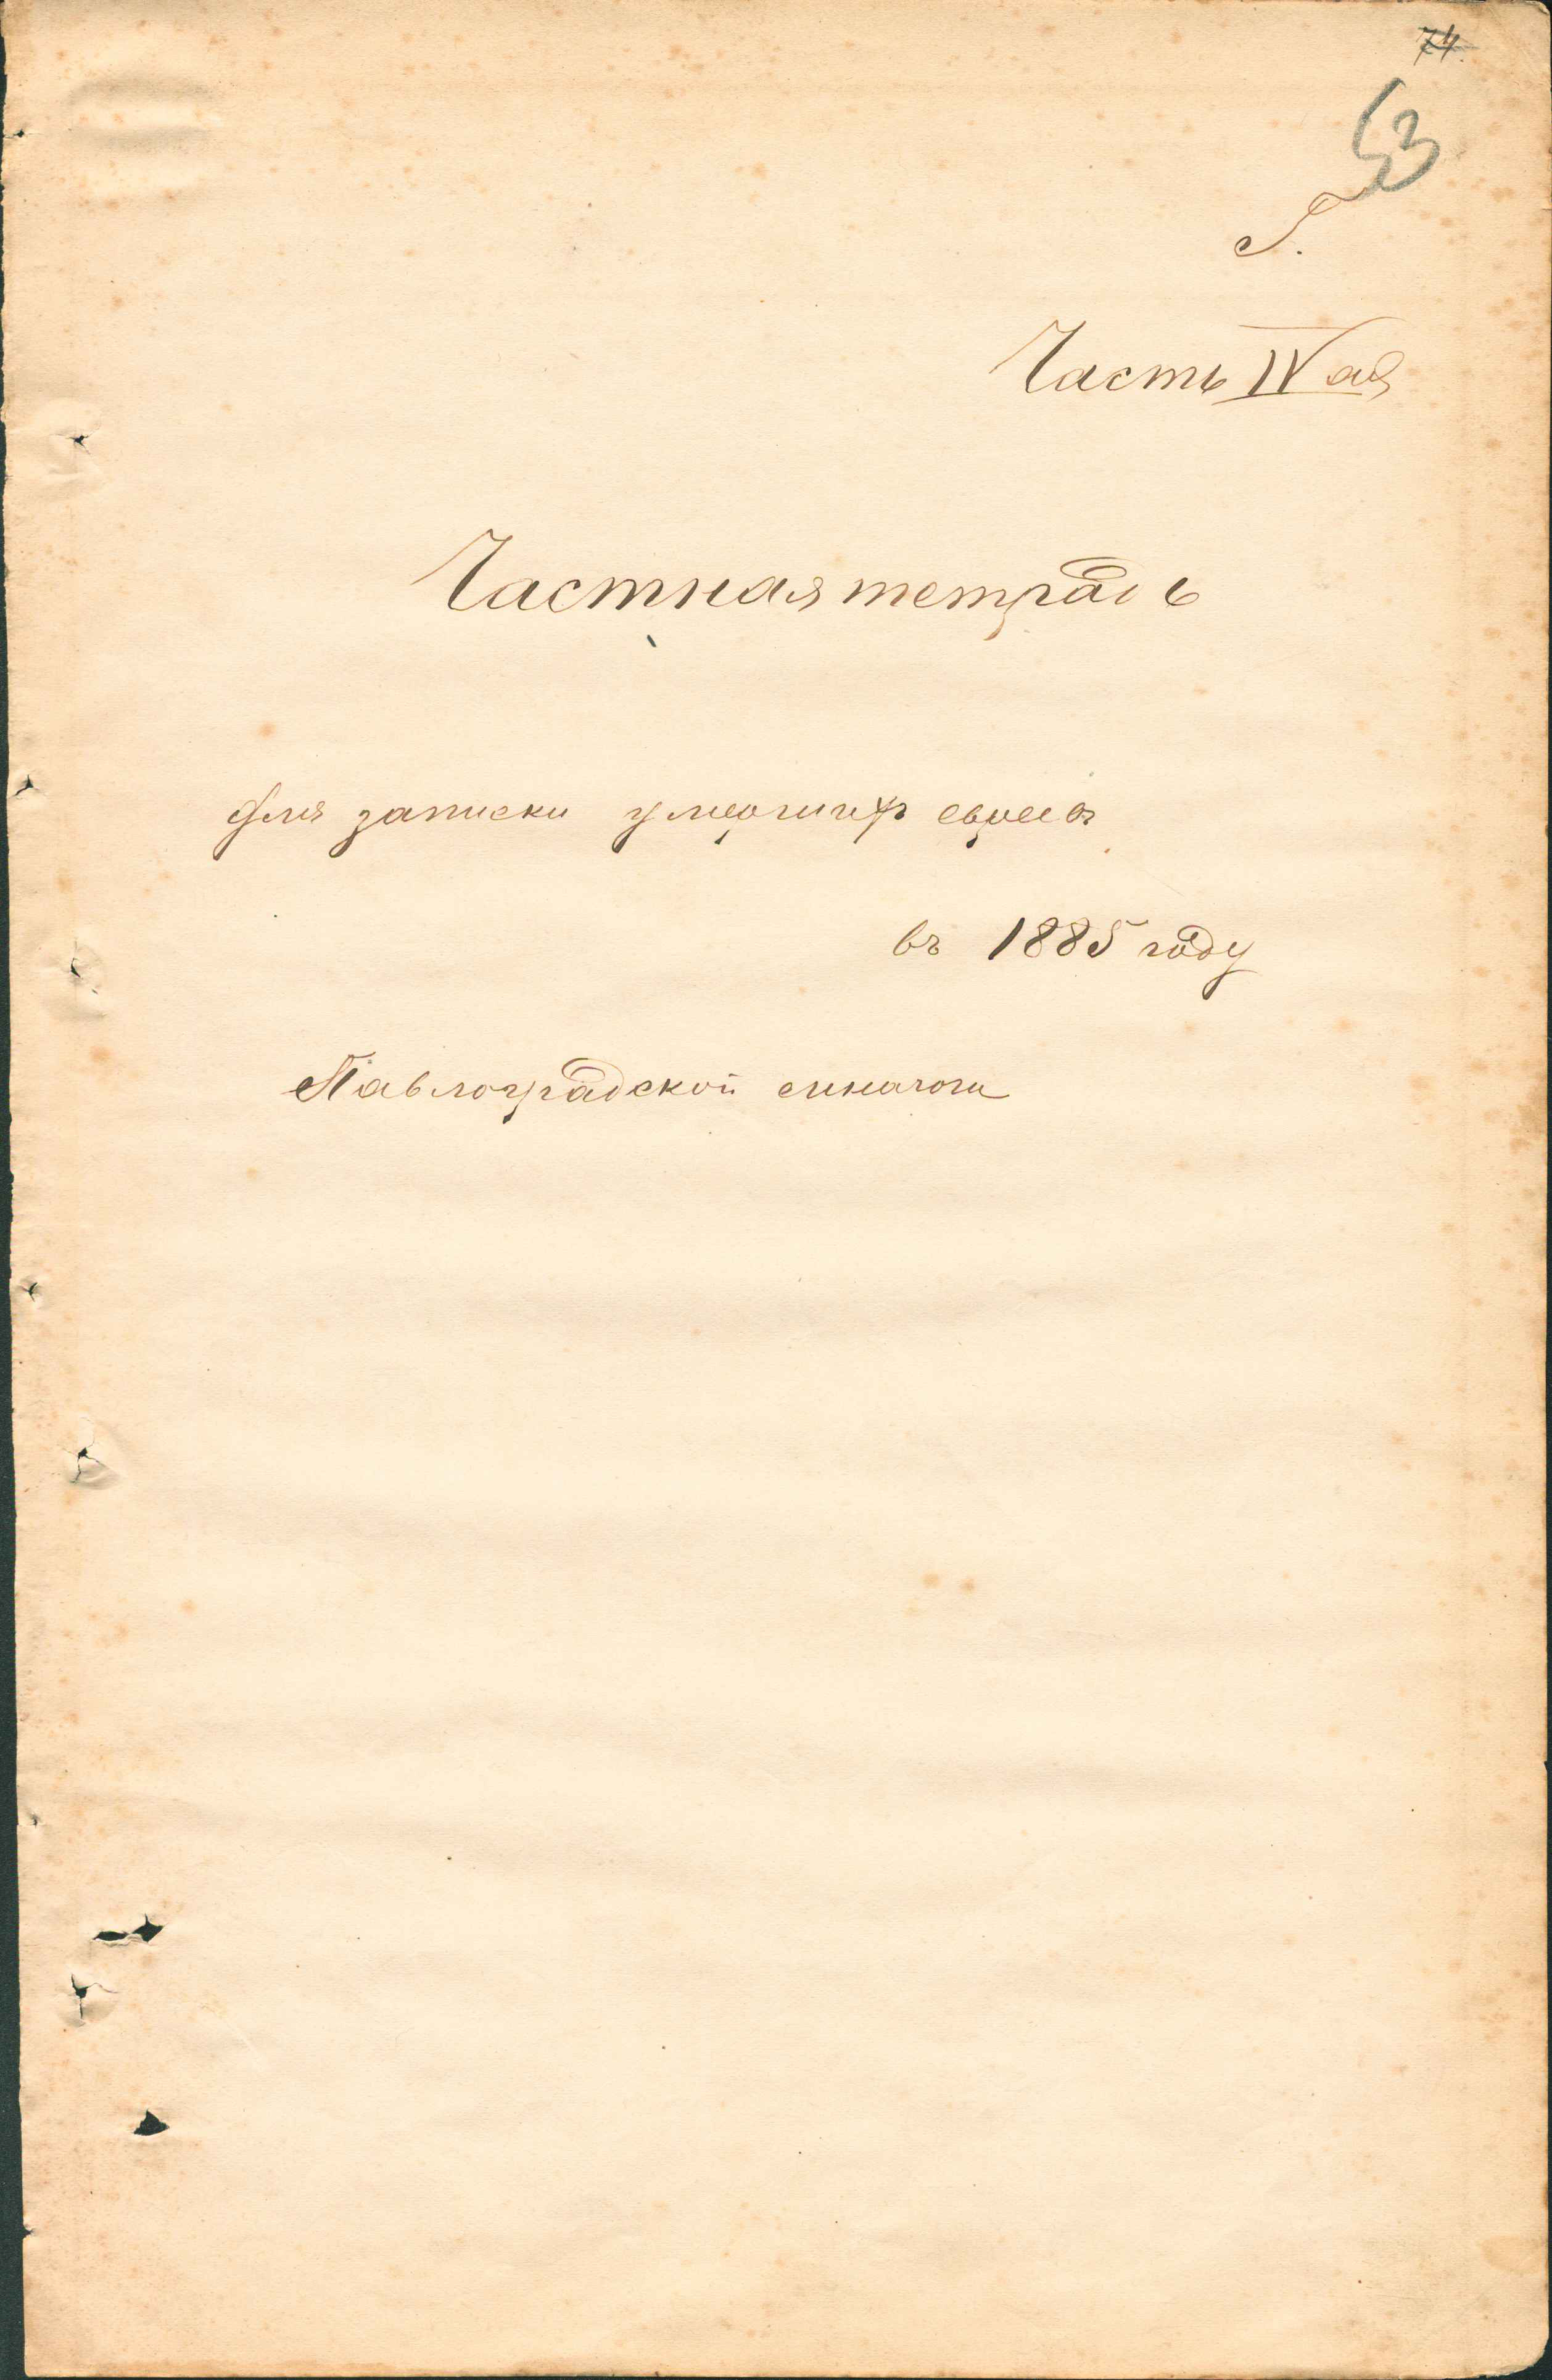 74.
53
I.
Часть IV ая
Частная тетрадь
для записки умерших евреевъ
въ 1885 году
Павлоградской синагоги